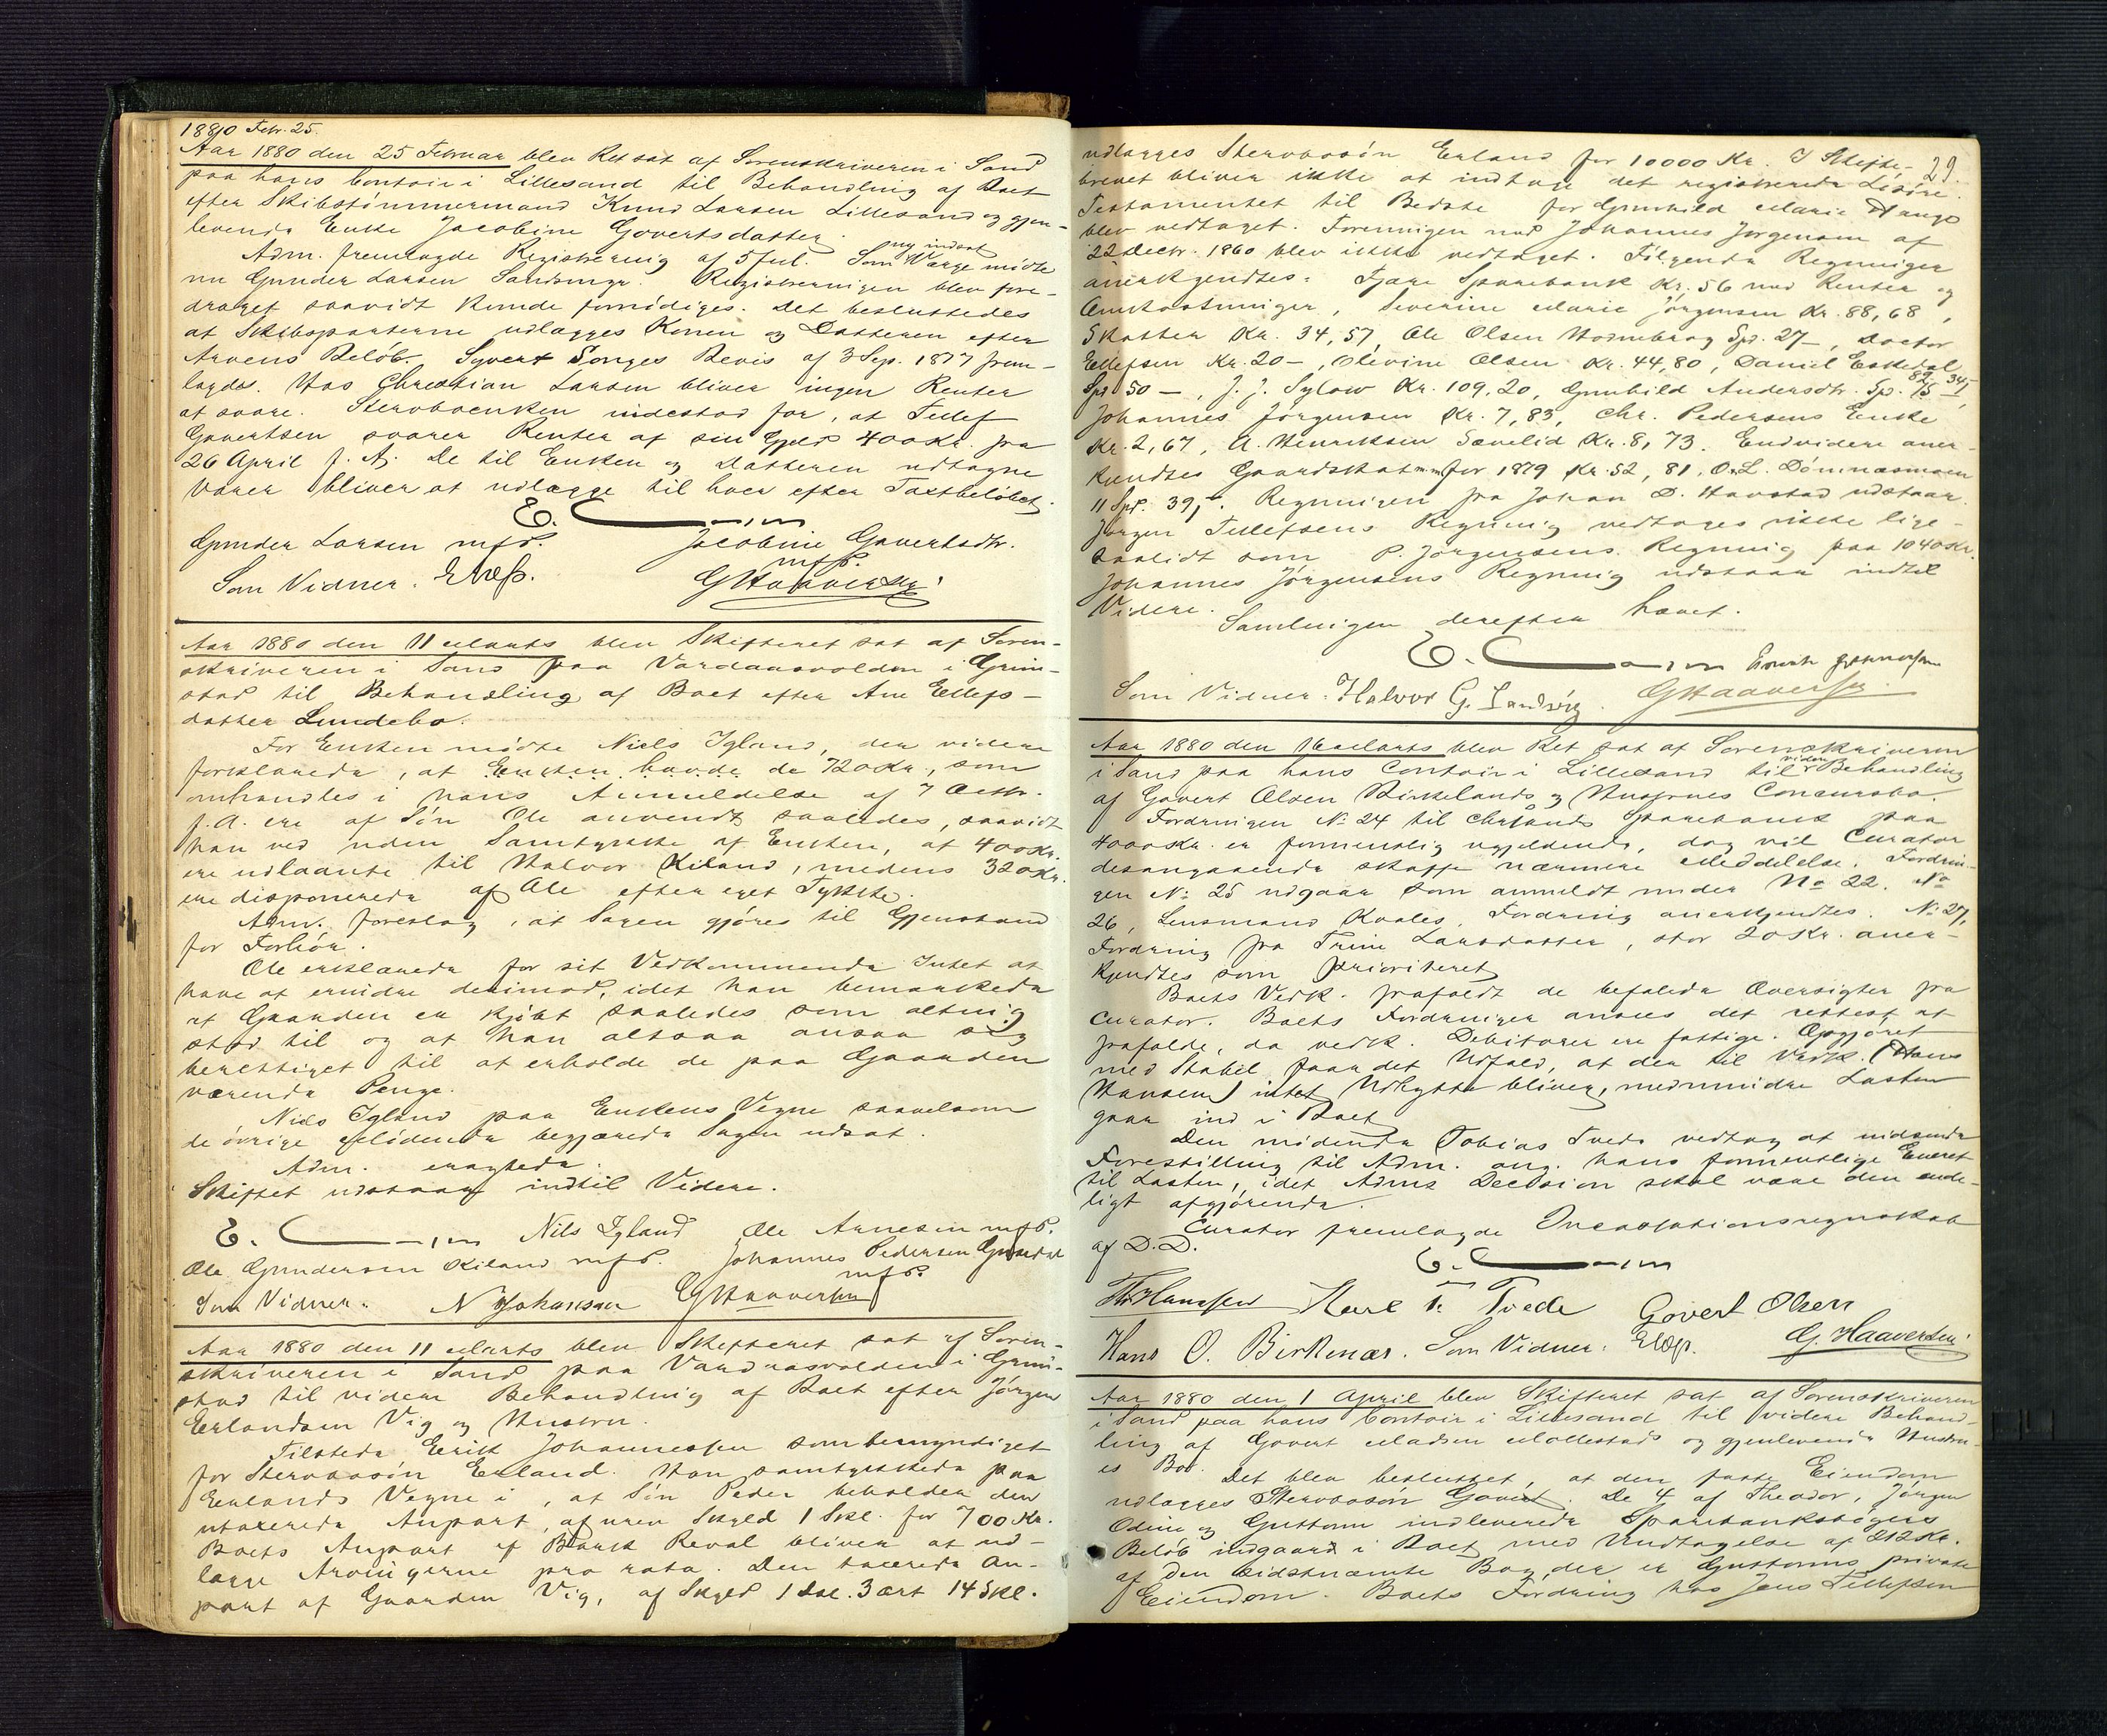 1880 Febr. 25.
Aar 1880 den 25 Februar blev Ret sat af Sorenskriveren i Sand
paa hans Contoir i Lillesand til Behandling af Boet
efter Skibstömmermand Knud Larsen Lillesand og gjen-
levende Enke Jacobine Govertsdatter.
Adm. fremlagde Registrering af 5 Jul. Som ny indsat Værge mödte
nu Gunder Larsen Sandsmyr. Registreringen blev fore-
draget saavidt kunde fornödiges. Det besluttedes
at Skibsparterne udlægges Konen og Datteren efter
Arvens Belöb. Syvert Songes Bevis af 3 Sep. 1877 frem-
lagdes. Hos Christian Larsen bliver ingen Renter
at svare. Stervboenken indestod for, at Tellef
Govertsen svarer Renter af sin Gjeld 400 Kr. fra
26 April f. A. De til Enken og Datteren udtagne
Varer bliver at udlægge til hver efter Taxtbelöbet.
E.
Gunder Larsen m.f.P. Jacobine Govertsdtr.
m.f.P.
Som Vidner. GHaaversen
Aar 1880 den 11 Marts blev Skifteret sat af Soren-
skriveren i Sand paa Vardaasvolden i Grim-
stad til Behandling af Boet efter Ane Ellefs-
datter Lundebo.
For Enken mödte Niels Igland, der videre
forklarede, at Enken havde de 720 Kr., som
omhandles i hans Anmeldelse af 7 Octbr.
f. A. ere af Sön Ole anvendt saaledes, saavidt
han ved uden Samtykke af Enken, at 400 Kr.
ere udlaante til Halvor Kiland, medens 320 Kr.
ere disponerede af Ole efter eget Tykke.
Adm. foreslog, at Sagen gjöres til Gjenstand
for Forhör.
Ole erklærede for sit Vedkommende Intet at
have at erindre derimod, idet han bemærkede
at Gaarden er kjöbt saaledes som alting
stod til og at han altsaa ansaa sig
berettiget til at erholde de paa Gaarden
værende Penge.
Niels Igland paa Enkens Vegne saavelsom
de övrige Mödende begjærede Sagen udsat.
Adm. eragtede:
Skiftet udstaar indtil Videre.
E. Nils Igland Ole Arnesen m.f.P.
Ole Gundersen Kiland m.f.P. Johannes Pedersen
m.f.P.
Som Vidner. N Johansen GHaaversen
Aar 1880 den 11 Marts blev Skifteret sat af Soren-
skriveren i Sand paa Vardaasvolden i Grim-
stad til videre Behandling af Boet efter Jörgen
Erlandsen Vig og Hustru.
Tilstede Erik Johannessen som bemyndiget
for Stervbosön Erland. Han samtykkede paa
Erlands Vegne i, at Sön Peder beholder den
utaxerede Anpart af uren Skyld 1 Skl. for 700 Kr.
Boets Anpart af Bark Reval bliver at ud-
lægge Arvingerne pro rata. Den taxerede An-
part af Gaarden Vig, af Skyld 1 Dal. 3 ort 14 Skl.
29.
udlægges Stervbosön Erland for 10000 Kr. I Skifte-
brevet bliver ikke at indtage det registrerede Lösöre.
Testamentet til Bedste for Gunhild Marie Hauge
blev vedtaget. Foreningen med Johannes Jörgensen af
22 Decbr. 1860 blev ikke vedtaget. Fölgende Regninger
anerkjendtes: Fjære Sparebank Kr. 56 med Renter og
Omkostninger, Severine Marie Jörgensen Kr. 88,68,
Skatter Kr. 34,57, Ole Olsen Spd. 27 –, Doctor
Ellefsen Kr. 20 –, Olevine Olsen Kr. 44,80, Daniel Eskedal
Spd 50 –, J. J. Sylow Kr. 109,20, Gunhild Andersdtr. Sp.
Johannes Jörgensen Kr. 7,83, Chr. Pedersens Enke
Kr. 2,67, A. Henriksen Sævelid Kr. 8,73. Endvidere aner-
kjendtes Gaardskat for 1879 Kr. 52,81. O. L. Dömmesmoen
11 Spd. 39,-. Regningen fra Johan D. Havstad udstaar.
Jörgen Tellefsens Regning vedtages ikke lige-
saalidt som P. Jörgensens Regning paa 1040 Kr.
Johannes Jörgensens Regning udstaar indtil
Videre.
Samlingen derefter hævet.
E.
Som Vidner: Halvor G. Landvig. GHaaversen
Aar 1880 den 16 Marts blev Ret sat af Sorenskriveren
i Sand paa hans Contoir i Lillesand til videre Behandling
af Govert Olsen Birkelands og Hustrues Concursbo.
Fordringen No 24 til Chrsands Sparebank paa
4000 Kr. er formentlig ugjeldende, dog vil Curator
desangaaende skaffe nærmere Meddelelse. Fordrin-
gen No 25 udgaar som anmeldt under No 22. No
26, Lensmand Kaales Fordring anerkjendtes. No 27,
Fordring fra Trine Larsdatter, stor 20 Kr. aner-
kjendtes som prioriteret.
Boets Vedk. frafaldt de befalede Oversigter fra
Curator. Boets Fordringer ansees det rettest at
frafalde, da vedk. Debitorer ere fattige. Opgjöret
med Stabil faar det Udfald, at der til Vedk. (Hans
Hansen) intet Udbytte bliver, medmindre Lasten
gaar ind i Boet.
Den mödende Tobias Tvede vedtog at indsende
Forestilling til Adm. ang. hans formentlige Eneret
til Lasten, idet Adms Decision skal være den ende-
ligt afgjörende.
Curator fremlagde Incassationsregnskab
af D.D.
Govert Olsen
Hans O. Birkenær. Som Vidner: G. Haaversen
Aar 1880 den 1 April blev Skifteret sat af Sorenskriveren
i Sand paa hans Contoir i Lillesand til videre Behand-
ling af Govert Madsen Mollestads og gjenlevende Hustru-
es Bo.
Det blev besluttet, at den faste Eiendom
udlægges Stervbosön Govert. De 4 af Theodor, Jörgen
Odin og Guttorm indleverede Sparebankbögers
Belöb indgaar i Boet med Undtagelse af 212 Kr.
af den sidstnævnte Bog, der er Guttorms private
Eiendom. Boets Fordring hos Jens Tellefsen